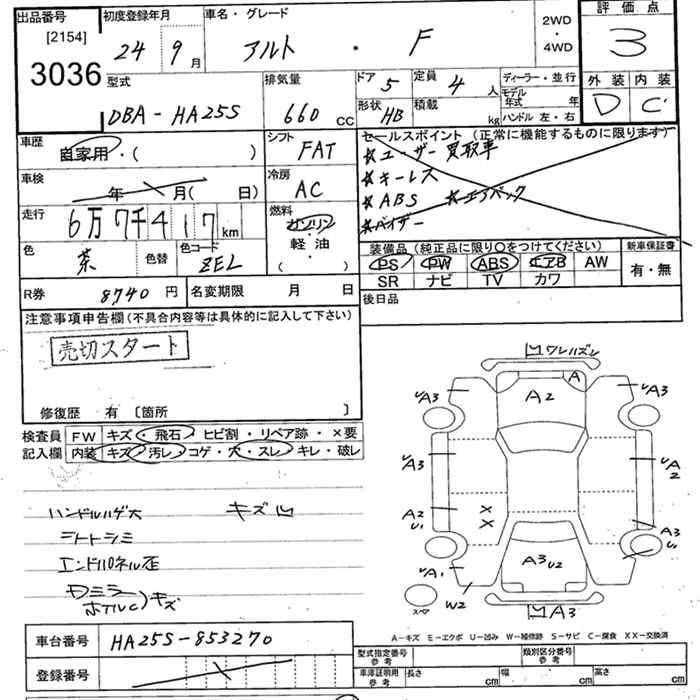 出品番号
[2154]
3036
初度登録年月
24年 9月
車名・グレード
アルト ・ F
2WD
・
4WD
評価点
3
外装 内装
D C
型式
DBA-HA25S
排気量
660 CC
ドア 5
定員 4 人
形状 HB
積載 kg
ディーラー・並行
モデル年式 年
ハンドル 左・右
車歴
自家用・( )
シフト
FAT
車検
年 月( 日)
冷房
AC
走行
6万7千417km
燃料
ガソリン
軽・油
( )
色
茶
色替
色コード
ZEL
セールスポイント (正常に機能するものに限ります)
☆ユーザー買取車
☆キーレス
☆ABS ☆エアバック
☆バイザー
装備品 (純正品に限り○をつけてください)
PS PW ABS エアB AW
SR ナビ TV カワ
新車保証書
有・無
R券 8740 円
名変期限 月 日
後日品
注意事項申告欄 (不具合内容等は具体的に記入して下さい)
売切スタート
修復歴 有 〔箇所 〕
検査員
記入欄
FW キズ・飛石・ヒビ割・リペア跡・×要
内装 キズ・汚レ・コゲ・穴・スレ・キレ・破レ
ハンドルハゲ大 キズ凹
シートシミ
エンドパネル歪
Dミラー
ホイルC)キズ
ワレハズレ
A
A2
A3
A3
A3
A2
A2
U1
X
X
A3
U1
A3 U2
A1
W2
スペア
A3
A-キズ E-エクボ U-凹み W-補修跡 S-サビ C-腐食 XX-交換済
車台番号
HA25S-853270
登録番号
型式指定番号
参考
類別区分番号
参考
車庫証明用
参考
長さ cm 幅 cm 高さ cm